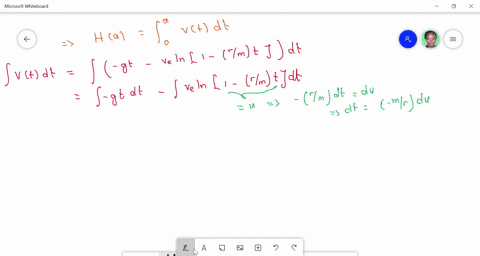 Microsoft Whiteboard
⇒ H(a) = ∫₀ᵃ v(t) dt
∫ v(t) dt = ∫ (-gt - ve ln [ 1 - (r/m) t ] ) dt
= ∫ -gt dt - ∫ ve ln [ 1 - (r/m) t ] dt
= u ⇒ - (r/m) dt = du
⇒ dt = (-m/r) du